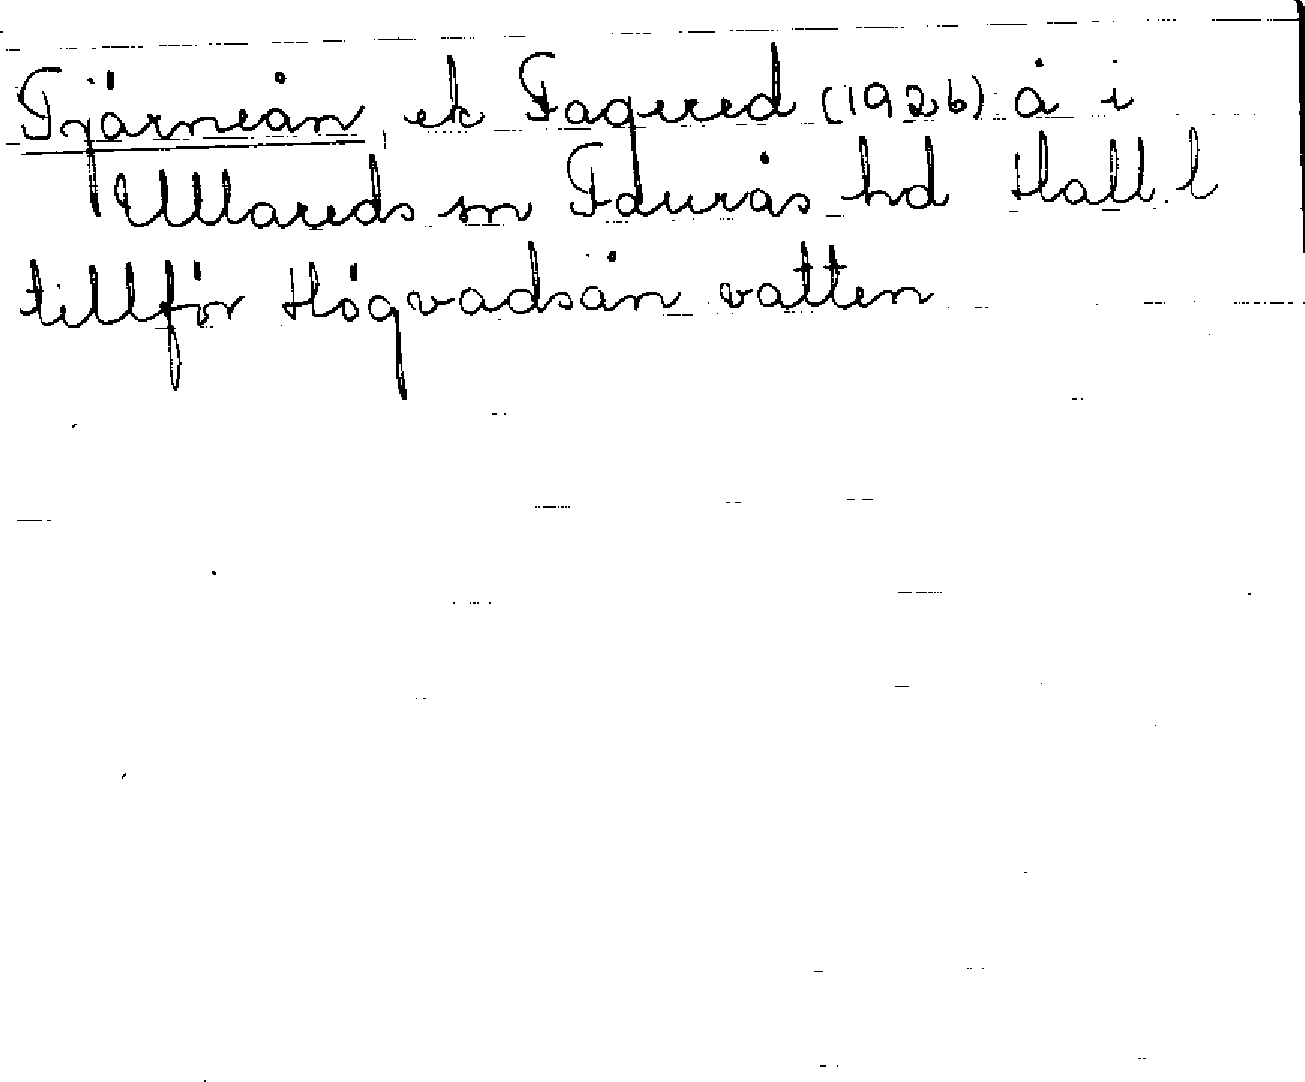 Tjärneån, ek Fagered (1926) å i
Ullareds sn Faurås hd Hall. l
tillför Högvadsån vatten